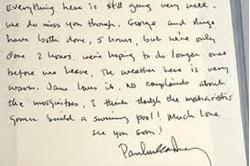 Everything here is still going very well.
We do miss you though. George and Ringo
have both done, 5 hours, but we've only
done 2 hours. We're hoping to do longer ones
before we leave. The weather here is very
warm. Jane loves it. No complaints about
the mosquitoes, I think though the maharishi's
gonna build a swimming pool! Much love
See you soon!
Paul McCartney